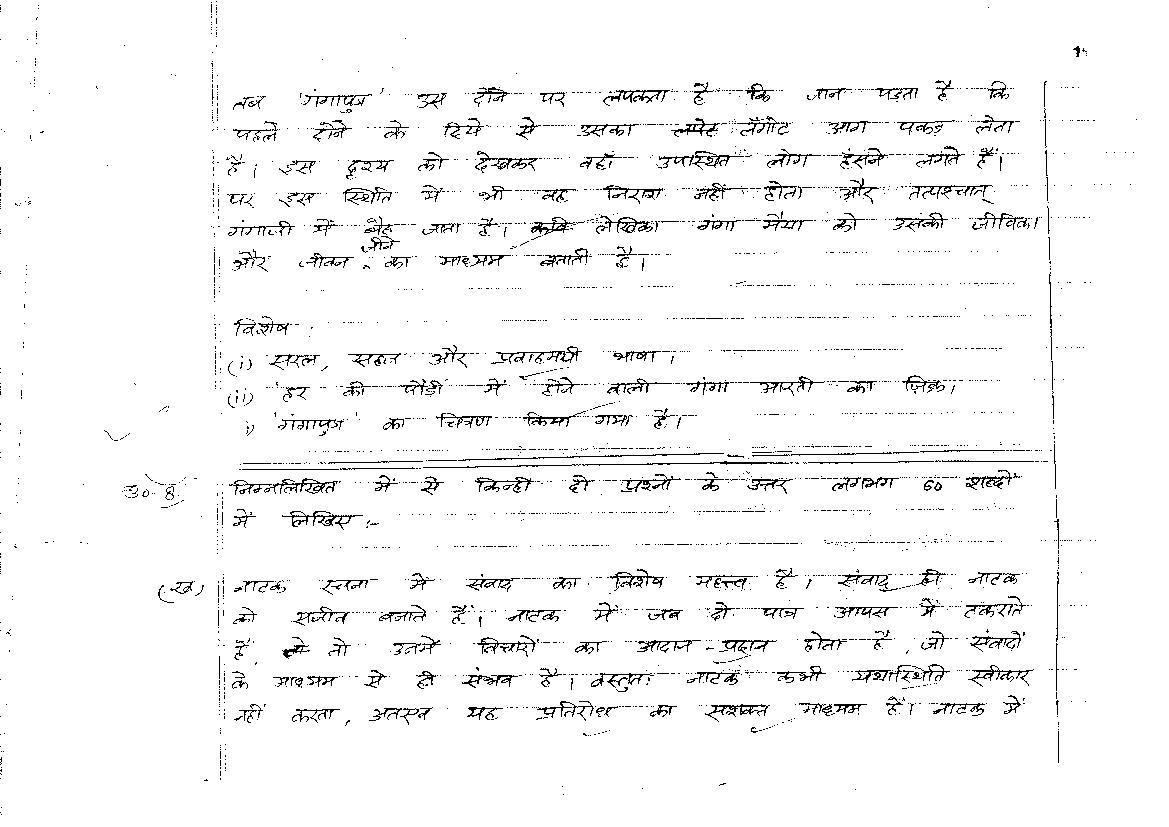 तब 'गंगापुत्र' उस दौने पर लपकता है कि जान पड़ता है कि
पहले दौने के दिये से उसका लपेट लँगोट आग पकड़ लेता
है। इस दृश्य को देखकर वहाँ उपास्थित लोग हंसने लगते हैं।
पर इस स्थिति में भी वह निराश नहीं होता और तत्पश्चात्
गंगाजी में बैठ जाता है। कवि लेखिका गंगा मैया को उसकी जीविका
और जीवन जीने का माध्यम बताती है।
विशेष :
(i) सरल, सहज और प्रवाहमयी भाषा।
(ii) 'हर की पौड़ी में होने वाली गंगा आरती का ज़िक्र।
i) 'गंगापुत्र' का चित्रण किया गया है।
उ० 8. निम्नलिखित में से किन्हीं दो प्रश्नों के उत्तर लगभग 60 शब्दों
में लिखिए :-
(ख) नाटक रचना में संवाद का विशेष महत्त्व है। संवाद ही नाटक
को सजीव बनाते हैं। नाटक में जब दो पात्र आपस में टकराते
हैं, तो उनमें विचारों का आदान-प्रदान होता है, जो संवादों
के माध्यम से ही संभव है। वस्तुतः नाटक कभी यथास्थिति स्वीकार
नहीं करता, अतएव यह प्रतिरोध का सशक्त माध्यम है। नाटक में